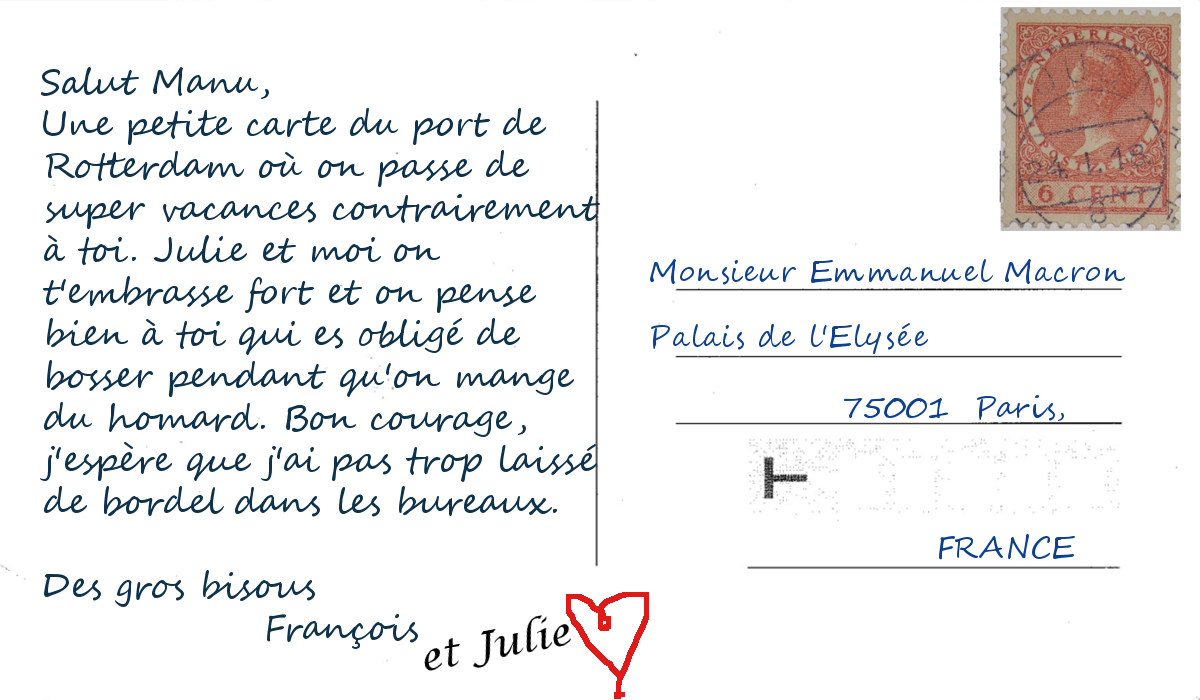 Salut Manu,
Une petite carte du port de
Rotterdam où on passe de
super vacances contrairement
à toi. Julie et moi on
t'embrasse fort et on pense
bien à toi qui es obligé de
bosser pendant qu'on mange
du homard. Bon courage,
j'espère que j'ai pas trop laissé
de bordel dans les bureaux.
Des gros bisous
François
et Julie
NEDERLAND
6 CENT
24.1.18
Monsieur Emmanuel Macron
Palais de l'Elysée
75001 Paris,
FRANCE